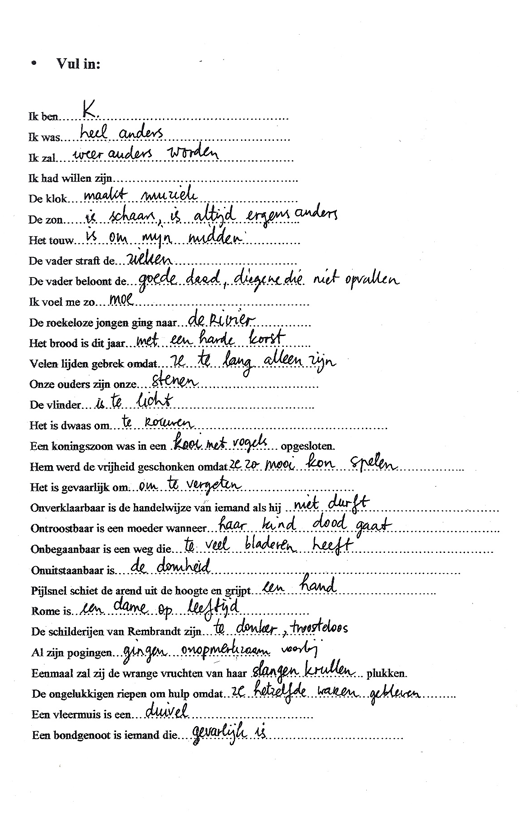 • Vul in:
Ik ben.....K.
Ik was.....heel anders
Ik zal....weer anders worden
Ik had willen zijn
De klok....maakt muziek
De zon.....is schaars, is altijd ergens anders
Het touw...is om mijn midden
De vader straft de...zieken
De vader beloont de...goede daad, diegene die niet opvallen
Ik voel me zo...moe
De roekeloze jongen ging naar...de Rivier
Het brood is dit jaar...met een harde korst
Velen lijden gebrek omdat...ze te lang alleen zijn
Onze ouders zijn onze....stenen
De vlinder...is te licht
Het is dwaas om...te rouwen
Een koningszoon was in een kooi met vogels opgesloten.
Hem werd de vrijheid geschonken omdat ze zo mooi kon spelen
Het is gevaarlijk om...om te vergeten
Onverklaarbaar is de handelwijze van iemand als hij ..niet durft
Ontroostbaar is een moeder wanneer...haar kind dood gaat
Onbegaanbaar is een weg die...te veel bladeren heeft
Onuitstaanbaar is..de domheid
Pijlsnel schiet de arend uit de hoogte en grijpt een hand
Rome is...een dame op leeftijd
De schilderijen van Rembrandt zijn...te donker, troosteloos
Al zijn pogingen...gingen onopmerkzaam voorbij
Eenmaal zal zij de wrange vruchten van haar slangen krullen... plukken.
De ongelukkigen riepen om hulp omdat...ze hetzelfde waren gebleven
Een vleermuis is een...duivel
Een bondgenoot is iemand die...gevarlijk is